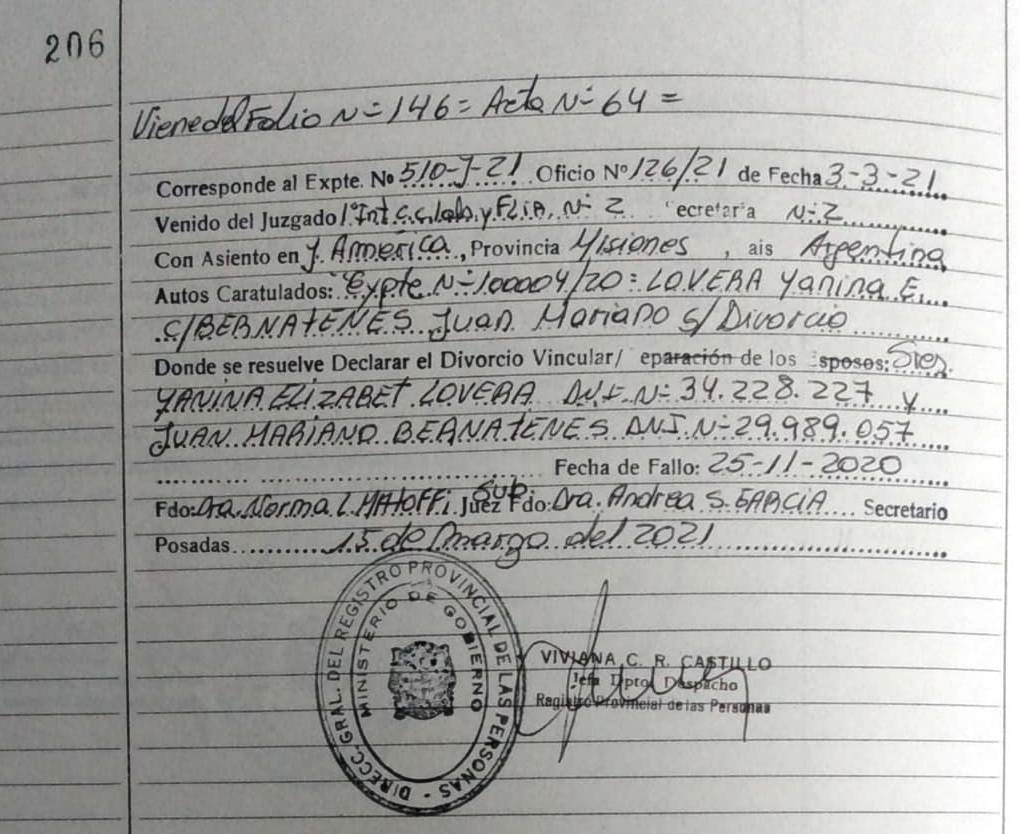 206
Viene del Folio N= 146= Acta N= 64=
Corresponde al Expte. Nº 510-J-21 Oficio Nº 126/21 de Fecha 3-3-21
Venido del Juzgado 1º Int C.C. Lab. y FLIA. N= 2 ecretaria N= 2
Con Asiento en J. America, Provincia Misiones, ais Argentina
Autos Caratulados: Expte N= 100004/20: LOVERA Yanina E.
C/BERNATENES Juan Mariano S/Divorcio
Donde se resuelve Declarar el Divorcio Vincular/ eparación de los sposos: Sres.
YANINA ELIZABET LOVERA D.N.I. N= 34.228.227 y
JUAN MARIANO BERNATENES DNI N= 29.989.057
Fecha de Fallo: 25-11-2020
Fdo: Dra. Norma L. Juez Sub Fdo: Dra. Andrea S. GARCIA Secretario
Posadas 15 de Marzo del 2021
DIRECC. GRAL. DEL REGISTRO PROVINCIAL DE LAS PERSONAS -
MINISTERIO DE GOBIERNO
VIVIANA C. R. CASTILLO
Jefa Dpto. Despacho
Registro Provincial de las Personas